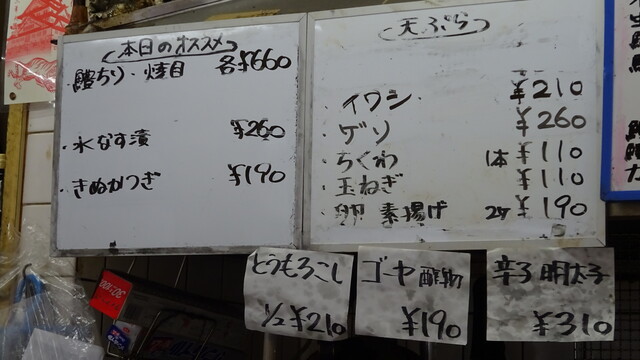 本日のオススメ
・鱧ちり・焼目 各¥660
・水なす漬 ¥260
・きぬかつぎ ¥190
天ぷら
・イワシ ¥210
・ゲソ ¥260
・ちくわ 1本¥110
・玉ねぎ ¥110
・卵 素揚げ 2ケ ¥190
とうもろこし
1/2 ¥210
ゴーヤ酢物
¥190
辛子明太子
¥310